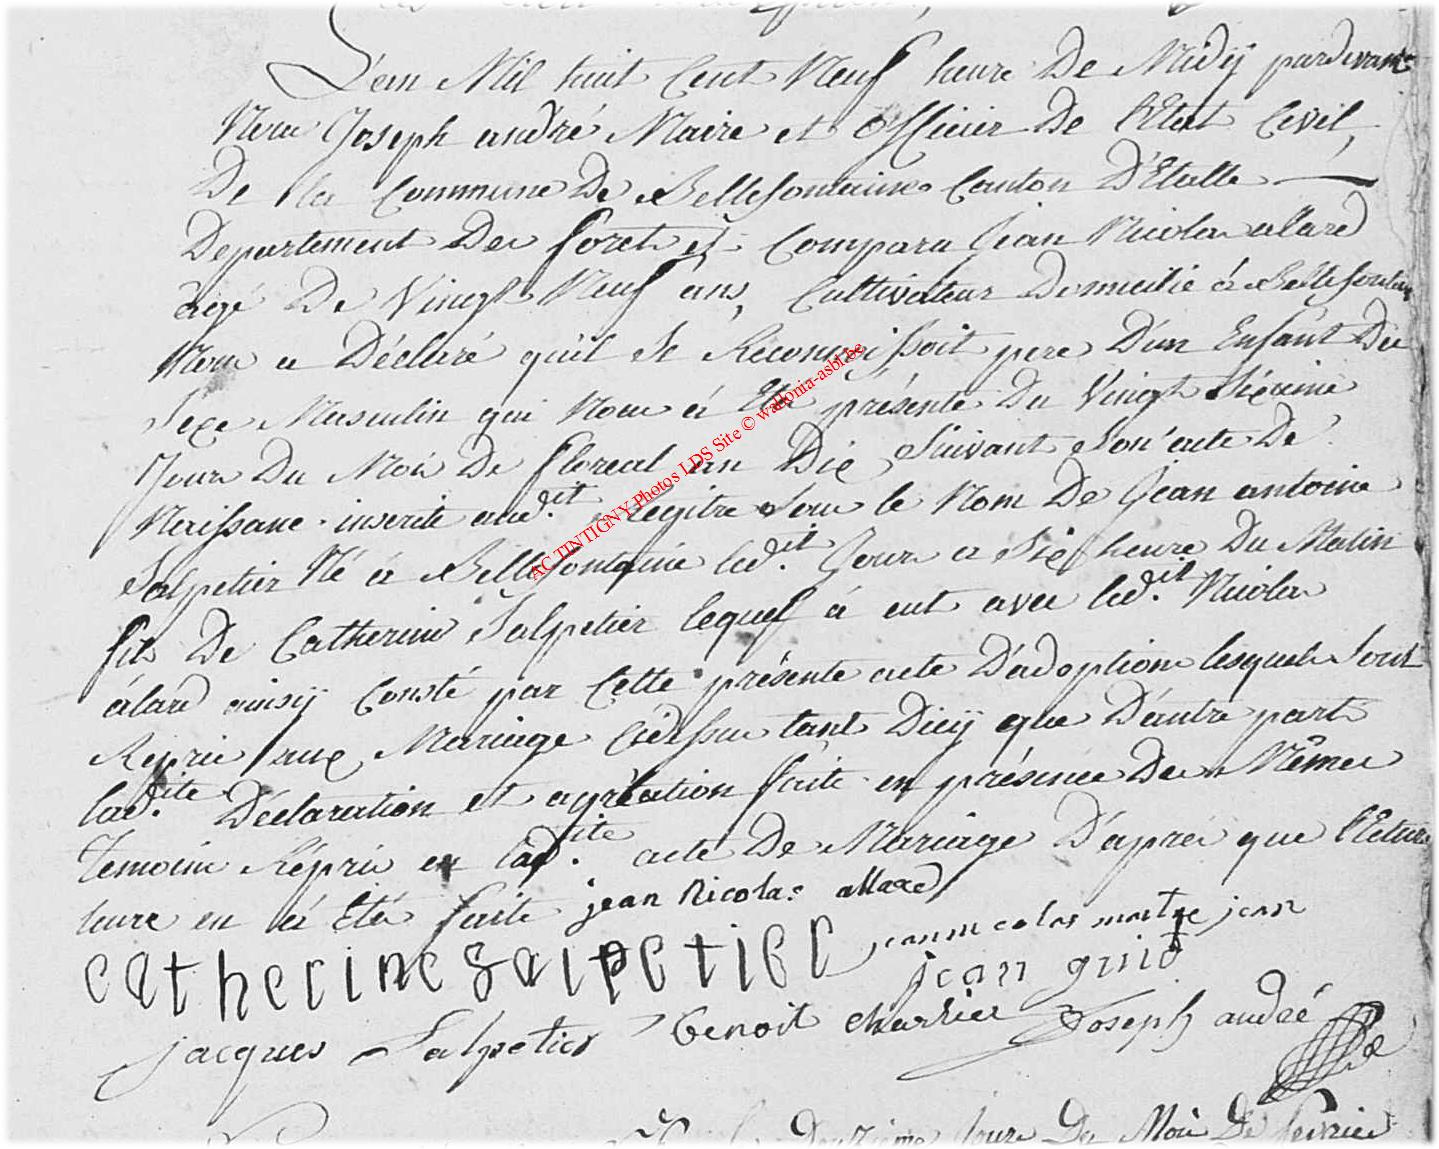 L'en Mil huit Cent Neuf heure De Midÿ pardevant
Nous Joseph andré Maire et officier De l'Etat Civil,
De la Commune De Bellefontaine Canton D'Etalle
Departement Des foret est Comparu Jean Nicolas allard
âgé De Vingt Neuf ans, Cultivateur Domicilié à Bellefontaine
Nous a Déclaré qu'il Se Reconnoissoit pere D'un Enfant Du
Sexe Masculin qui Nous à Eté présenté Du Vingt Sixieme
Jour Du Mois De floreal an Dix, Suivant Son acte De
Naissance inscrite aud.it Regitre Sous le Nom De Jean antoine
Salpetier Né à Bellefontaine led.it Jour a Six heure Du Matin
fils De Catherine Salpetier lequel à eut avec led.it Nicolas
alard ainsÿ Consté par Cette présente acte D'adoption lesquels Sont
Repris aux Mariage Cidessus tant Dicÿ que D'autre part
lad.ite Déclaration et agréation faite en présence Des Mêmes
Temoins Répris en lad.ite acte De Mariage D'après que lecture
leure en à Eté faite jean Nicolas allard
catherine salpetier jean nicolas
jean guio
jacques Salpetier benoit charlier Joseph andré
Douzieme Jour Du Mois De fevrier
AC TINTIGNY Photos LDS Site © wallonia-asbl.be